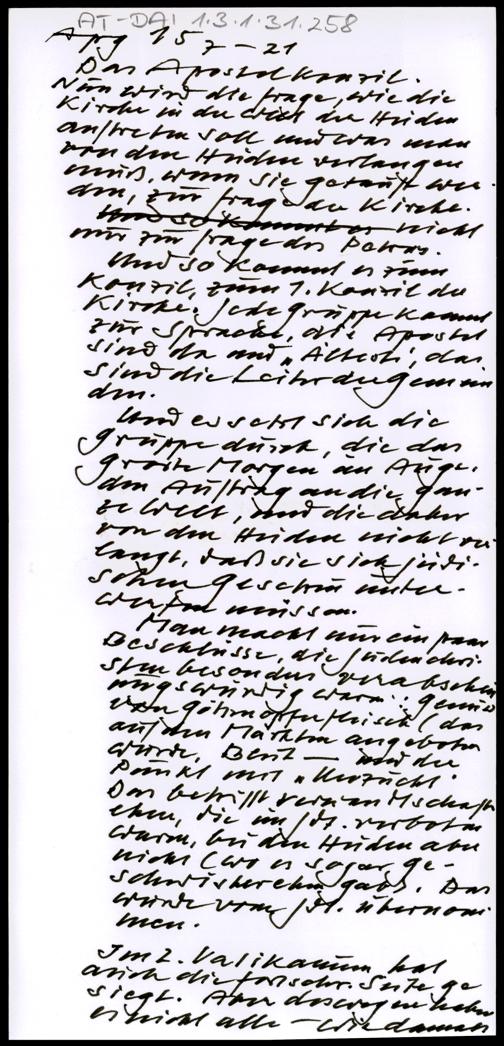 AT-DAI 1.3.1.31.258
Apg 15 7-21
Das Apostelkonzil.
Nun wird die Frage, wie die
Kirche in der Welt der Heiden
auftreten soll und was man
von den Heiden verlangen
muß, wenn sie getauft wer-
den, zur Frage der Kirche.
Und so kommt es nicht
nur zur Frage des Petrus.
Und so kommt es zum
Konzil, zum 1. Konzil der
Kirche. Jede Gruppe kommt
zur Sprache, die Apostel
sind da und „Älteste", das
sind die Leiter der Gemein
den.
Und es setzt sich die
Gruppe durch, die das
große Morgen im Auge,
den Auftrag an die gan-
ze Welt, und die daher
von den Heiden nicht ver
langt, daß sie sich jüdi-
schen Gesetzen unter-
werfen müssen.
Man macht nur ein paar
Beschlüsse, die Judenchri-
sten besonders verabscheu
ungswürdig waren: Genuß
von Götzenopferfleisch (das
auf den Märkten angeboten
wurde, Blut — und der
Punkt mit „Unzucht".
Das betrifft Verwandtschafts
ehen, die im Jdt. verboten
waren, bei den Heiden aber
nicht (wo es sogar Ge-
schwisterehen gab). Das
wurde vom Jdt. übernom
men.
Im 2. Vatikanum hat
auch die fortschr. Seite ge
siegt. Aber deswegen haben
es nicht alle — wie damals